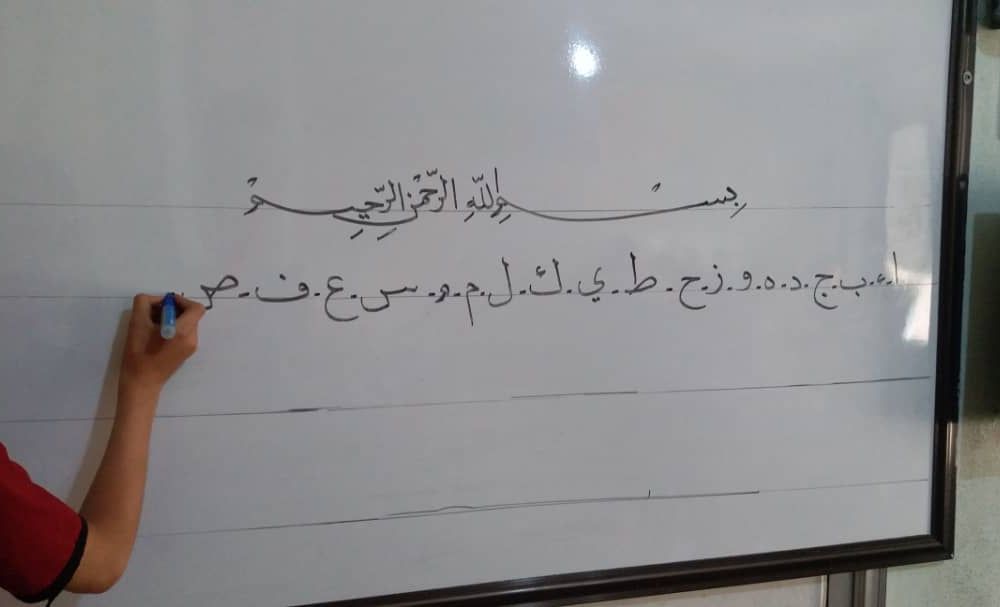 بِسْمِ اللّهِ الرّحْمٰنِ الرّحِيمْ
ا.ء.ب.ج.د.ه.و.ز.ح.ط.ي.ك.ل.م.و.س.ع.ف.ص.